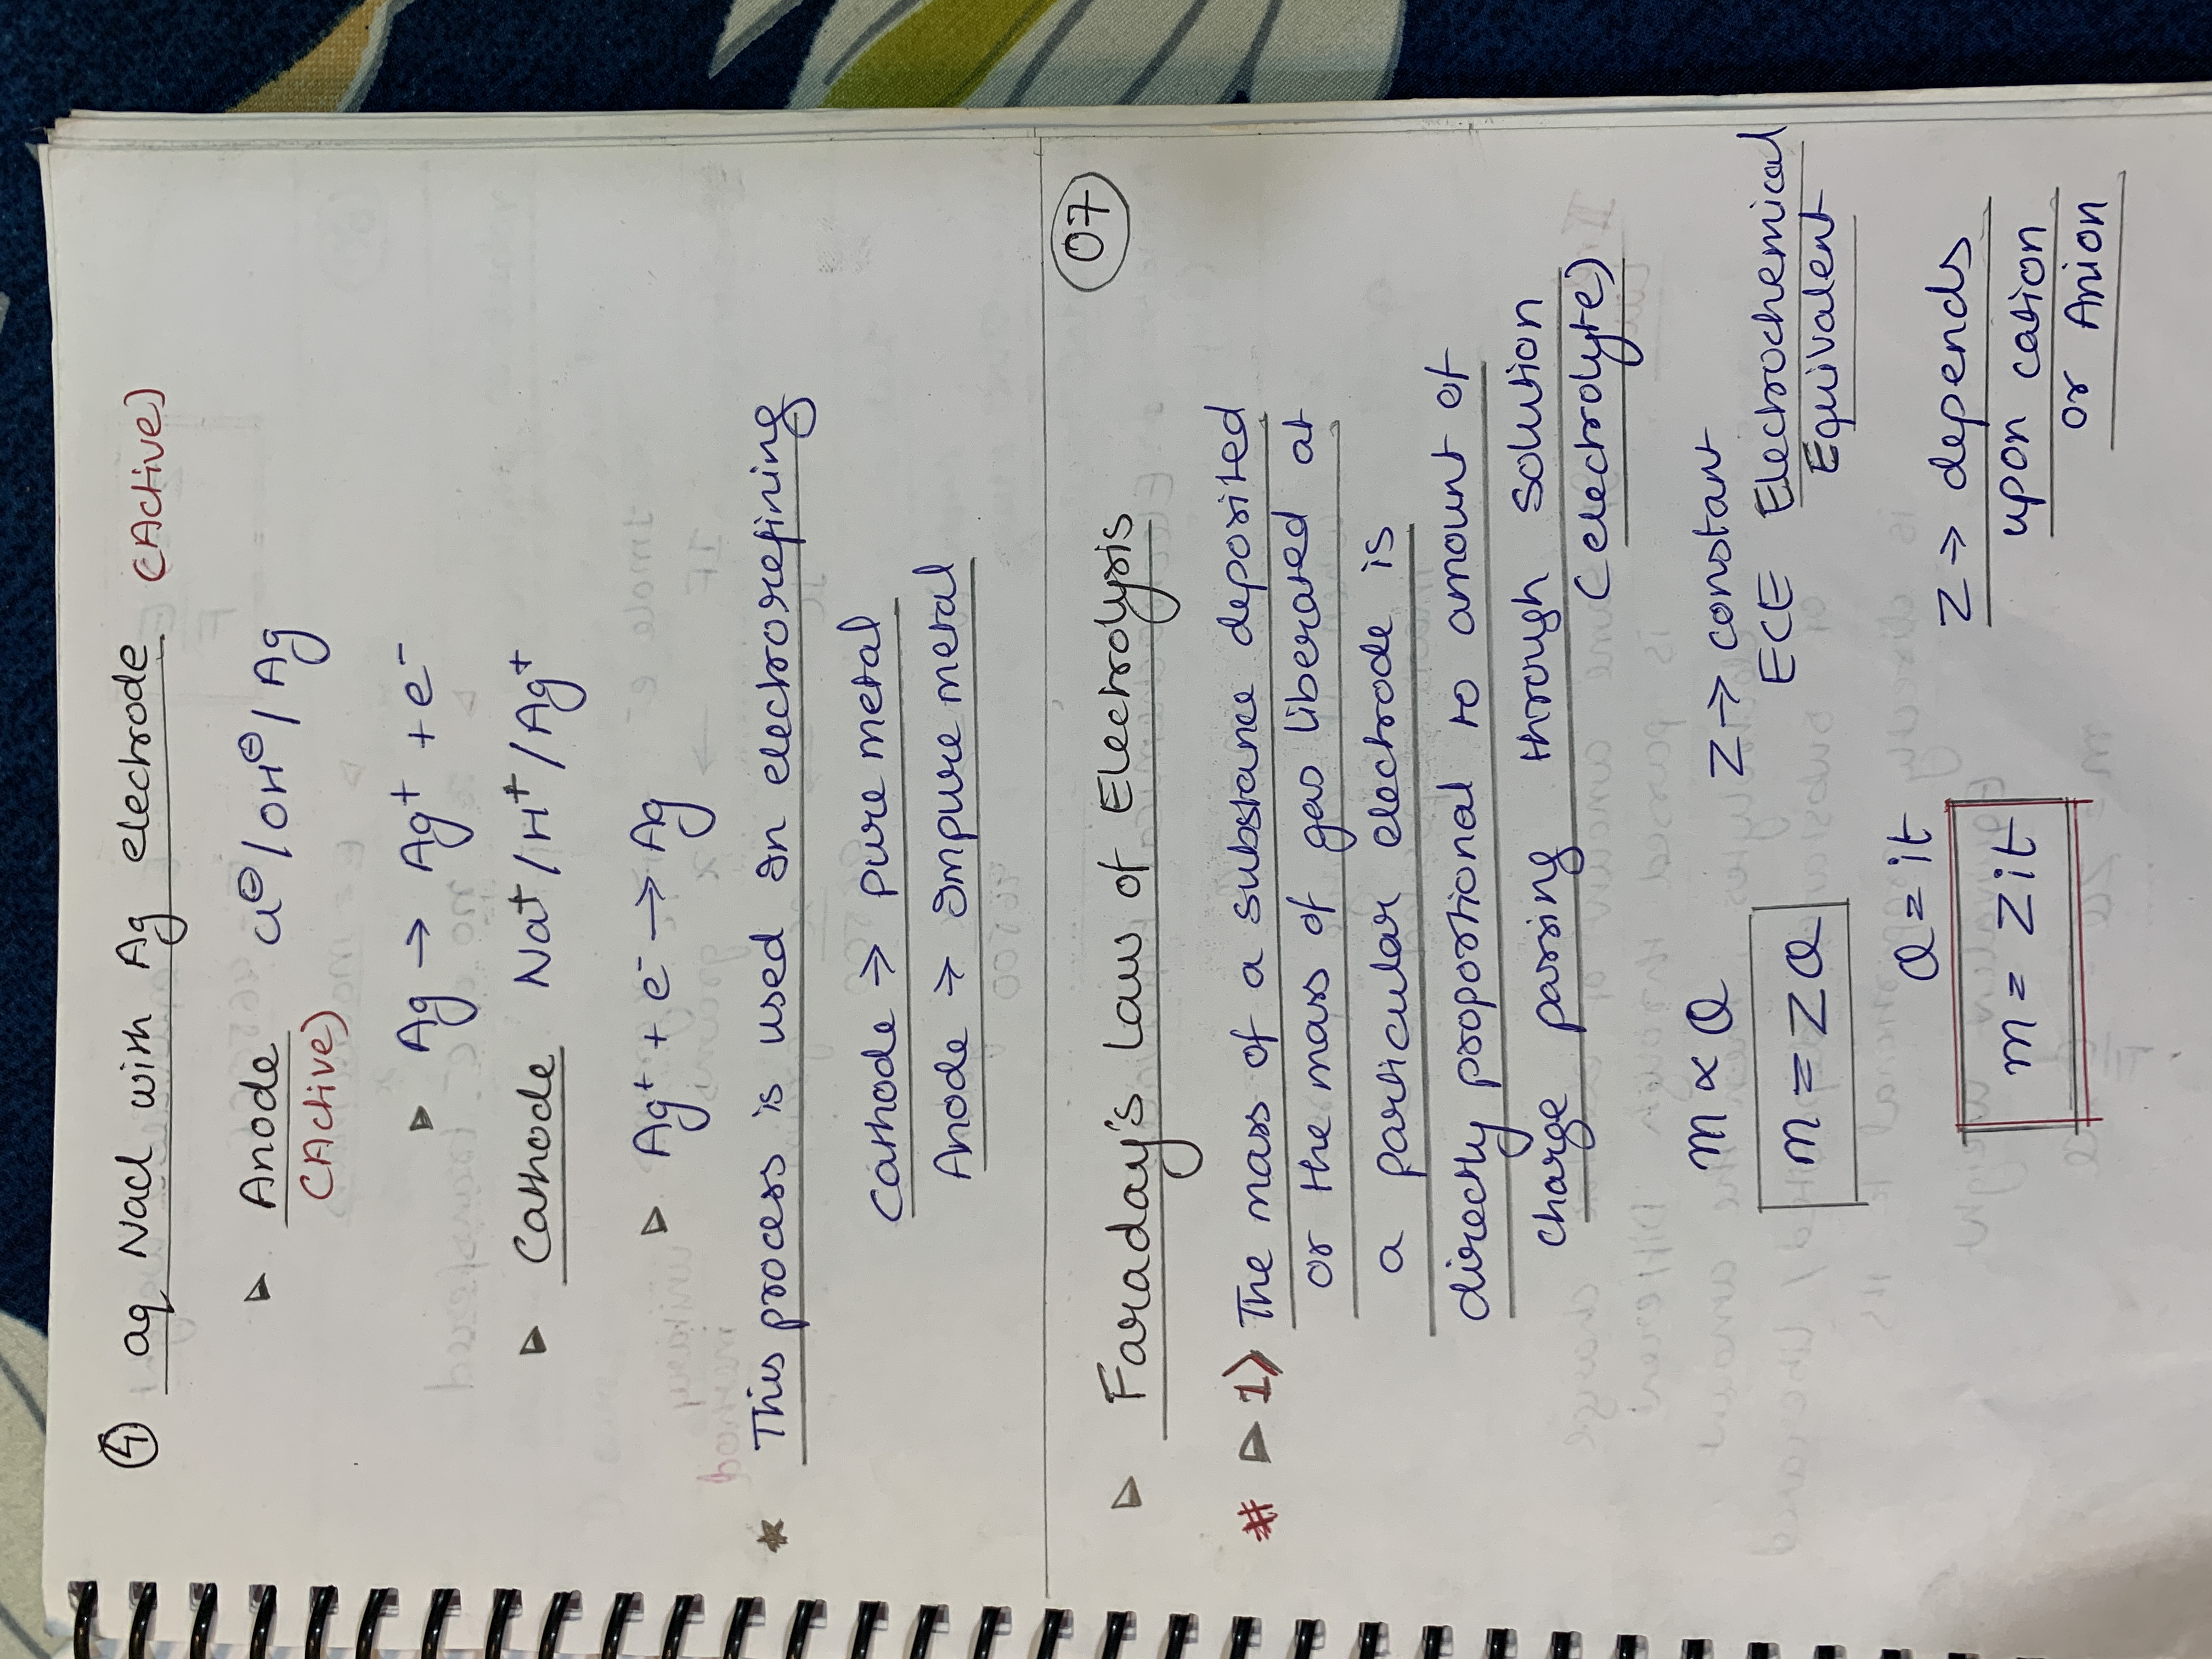 ④ aq NaCl with Ag electrode (Active)
Anode Cl⊖/OH⊖/Ag
(Active)
Ag → Ag⁺ + e⁻
Cathode Na⁺/H⁺/Ag⁺
Ag⁺ + e⁻ → Ag
* This process is used In electrorefining
Cathode → pure metal
Anode → Impure metal
07
Faraday's Law of Electrolysis
# 1) The mass of a substance deposited
or the mass of gas liberated at
a particular electrode is
directly proportional to amount of
charge passing through solution
(electrolyte)
m ∝ Q Z → constant
ECE Electrochemical
m = ZQ Equivalent
Q = it
Z → depends
m = Zit upon cation
or Anion